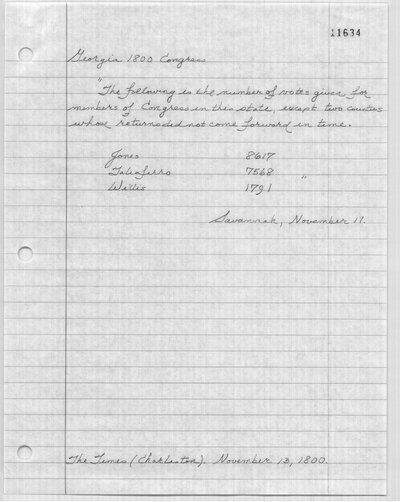 11634
Georgia 1800 Congress
"The following is the number of votes given for
members of Congress in this state, except two counties
whose returns did not come forward in time.
Jones 8617
Taliaferro 7568 "
Wallis 1791
Savannah, November 11.
The Times (Charleston). November 13, 1800.